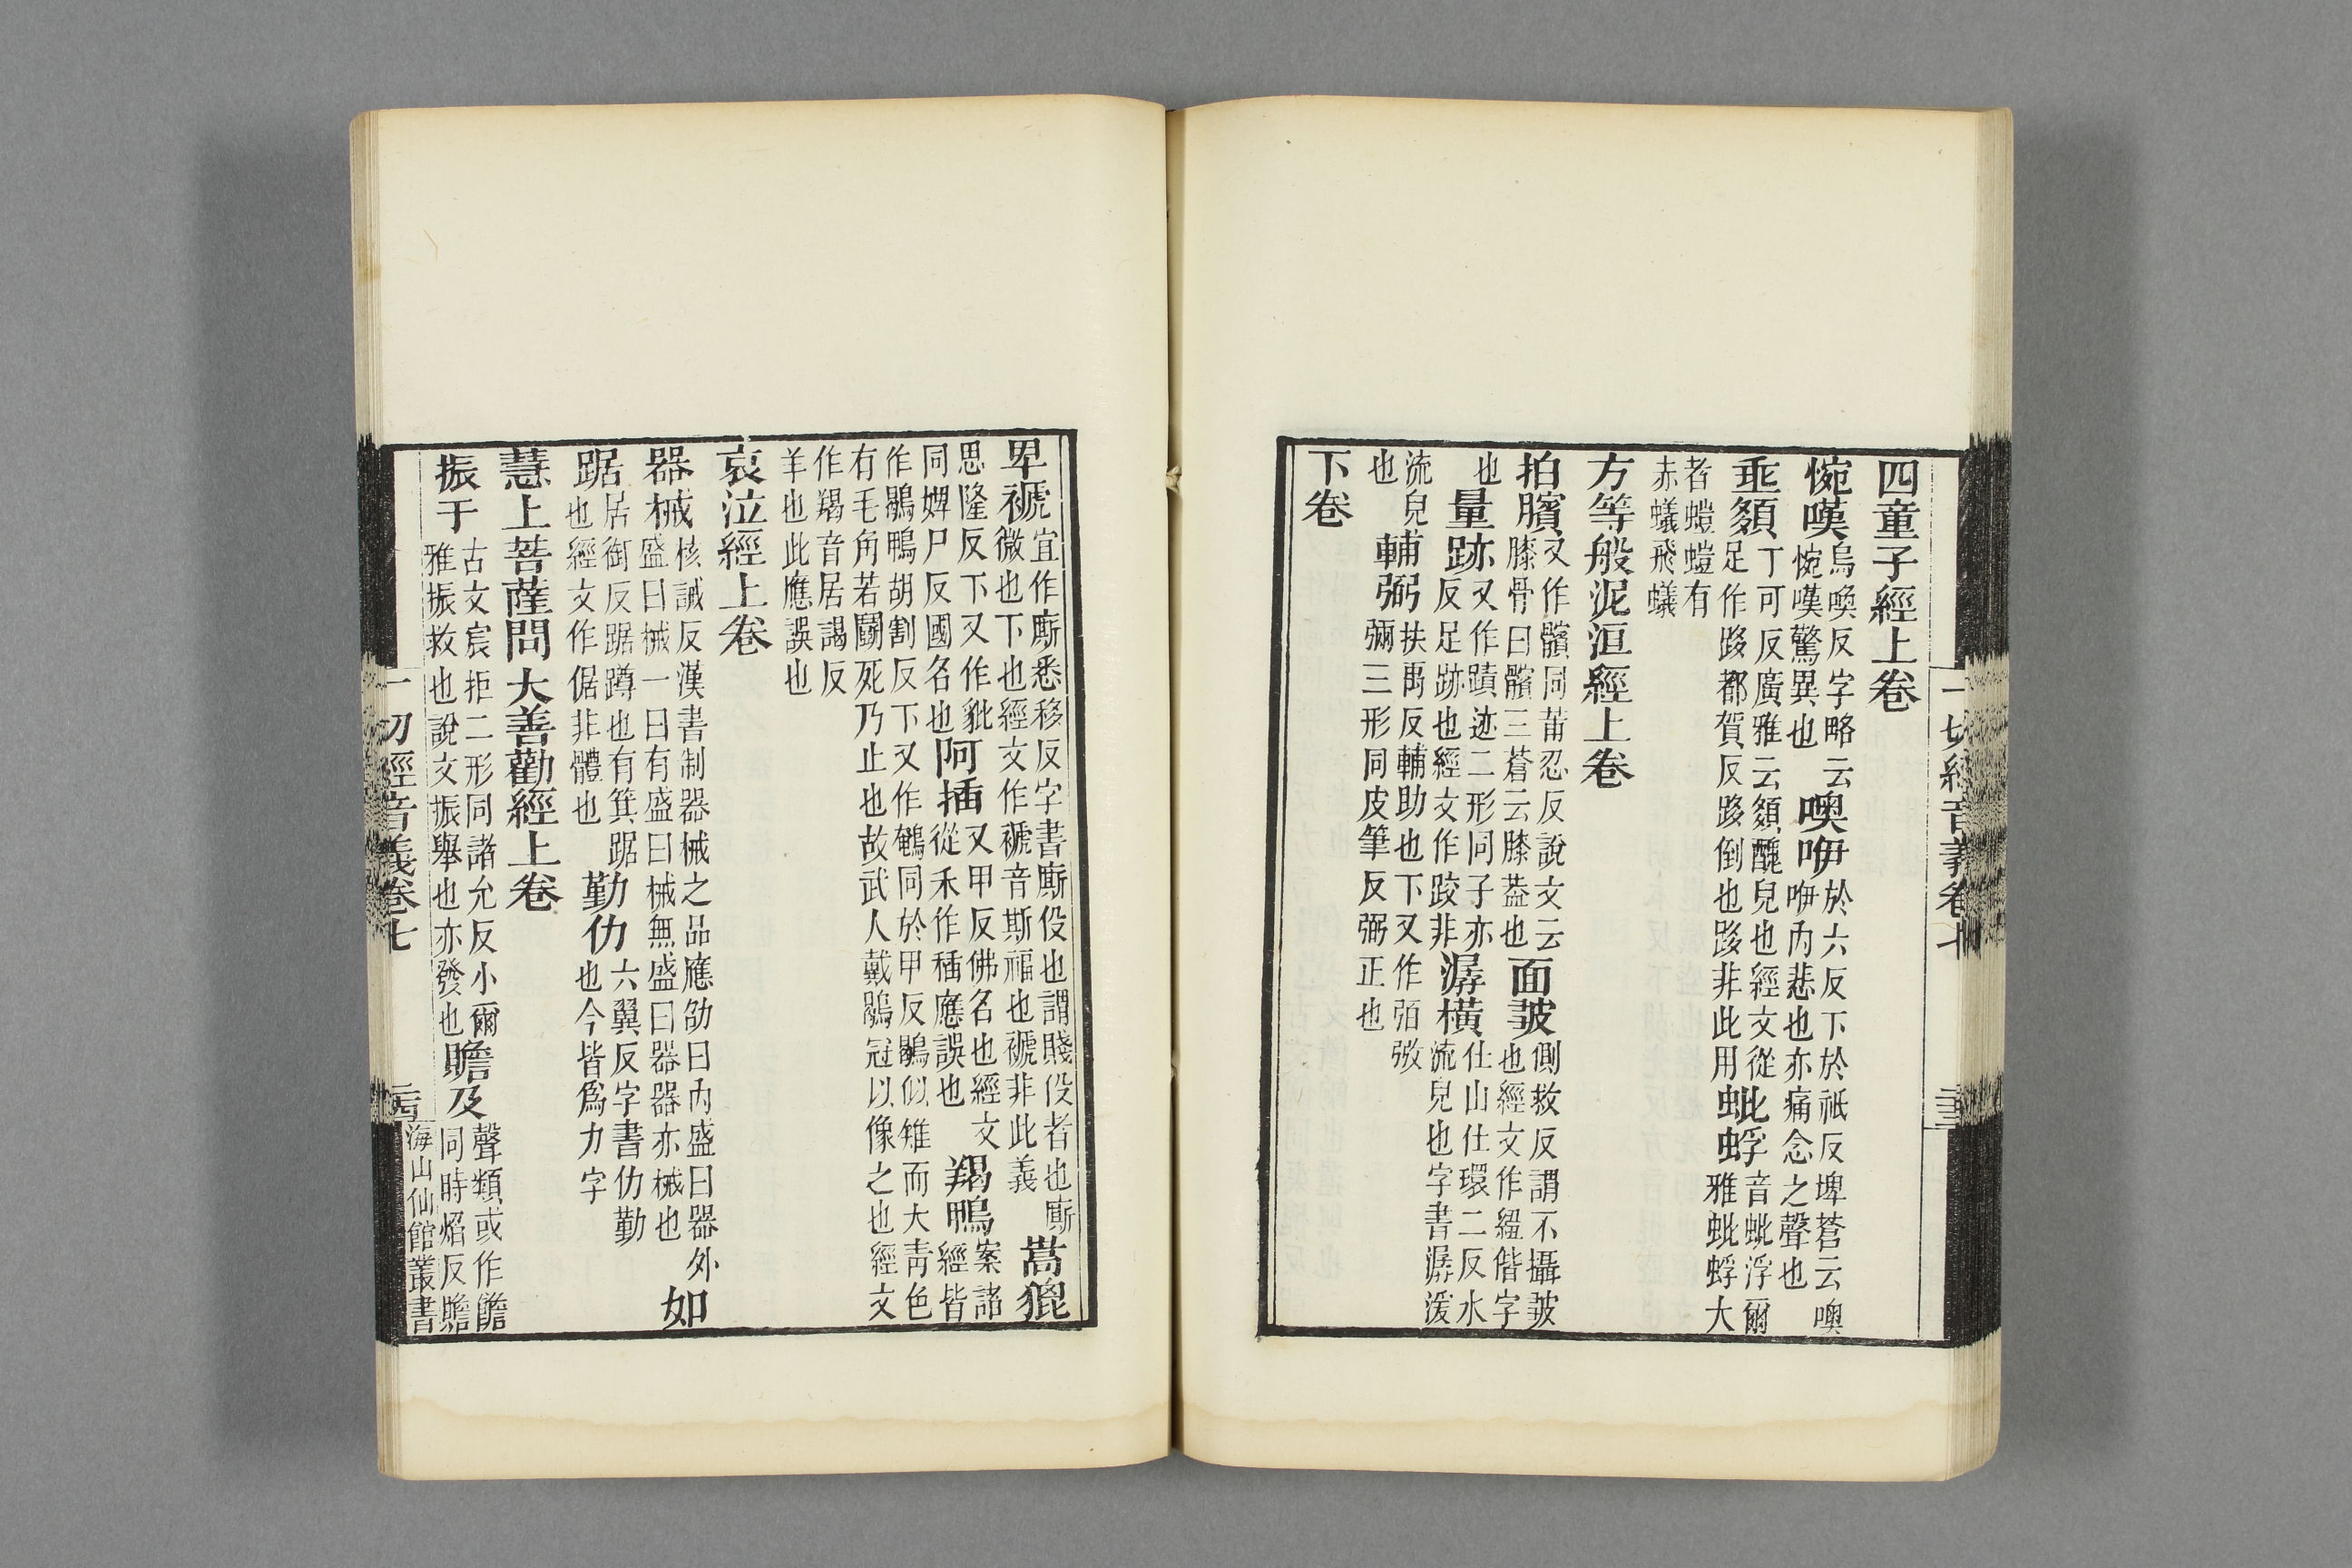 一切經音義卷七
四童子經上卷
惋嘆烏喚反字略云惋嘆驚異也噢咿於六反下於祇反埤蒼云噢咿內悲也亦痛念之聲也
乖䫂丁可反廣雅云䫂醜皃也經文從足作跢都賀反跢倒也跢非此用蚍蜉音蚍浮爾雅蚍蜉大
者螘螘有赤蟻飛蟻
方等般泥洹經上卷
拍臏又作髕同莆忍反說文云膝骨曰髕三蒼云膝蓋也面皺側救反謂不攝皺也經文作紐偕字
也量跡又作蹟迹二形同子亦反足跡也經文作跤非潺橫仕山仕環二反水流皃也字書潺湲
流皃也輔弼扶禹反輔助也下又作弻㢸彌三形同皮筆反弼正也
下卷
卑褫宜作廝悉移反字書廝伇也謂賤伇者也廝微也下也經文作褫音斯福也褫非此義嵩貔
思隆反下又作豼同婢尸反國名也阿插又甲反佛名也經文從禾作䅥應誤也羯鴨案諸經皆
作鶡鴨胡割反下又作䳌同於甲反鶡似雉而大青色有毛角若鬭死乃止也故武人戴鶡冠以像之也經文
作羯音居謁反羊也此應誤也
哀泣經上卷
器械核誡反漢書制器械之品應劭曰內盛曰器外盛曰械一曰有盛曰械無盛曰器器亦械也如
踞居御反踞蹲也有箕踞也經文作倨非體也勤仂六翼反字書仂勤也今皆爲力字
慧上菩薩問大善勸經上卷
振于古文宸拒二形同諸允反小爾雅振救也說文振舉也亦發也贍及聲類或作儋同時焰反贍
一切經音義卷七
海山仙館叢書